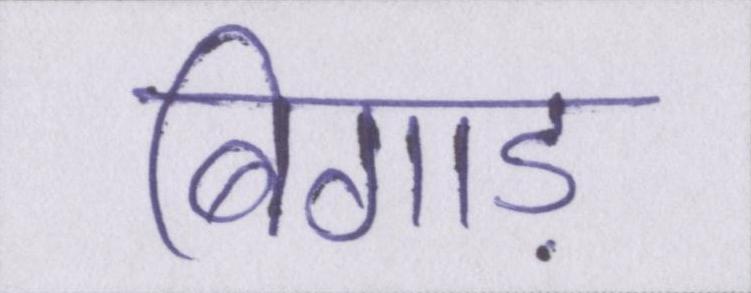 बिगाड़